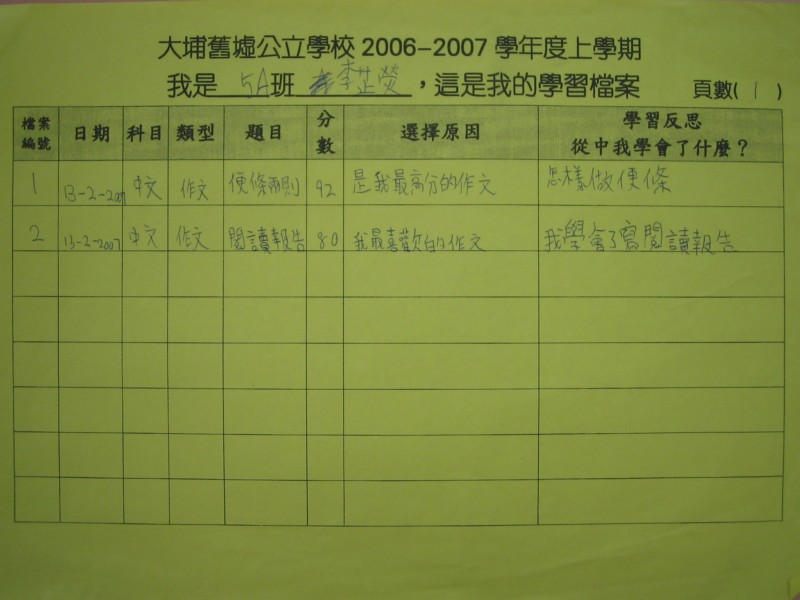 大埔舊墟公立學校 2006-2007 學年度上學期
我是 5A班 李芷熒，這是我的學習檔案 頁數( 1 )
檔案編號 日期 科目 類型 題目 分數 選擇原因 學習反思 從中我學會了什麼？
1 13-2-2007 中文 作文 便條兩則 92 是我最高分的作文 怎樣做便條
2 13-2-2007 中文 作文 閱讀報告 80 我最喜歡的作文 我學會了寫閱讀報告